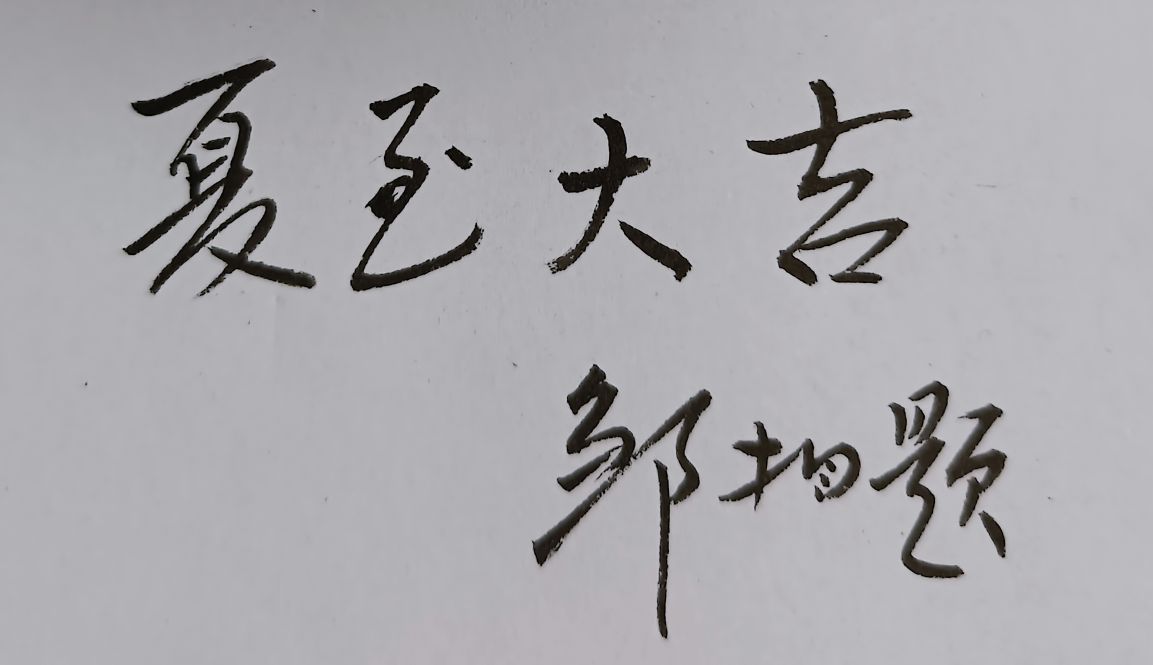 夏至大吉
邹均题